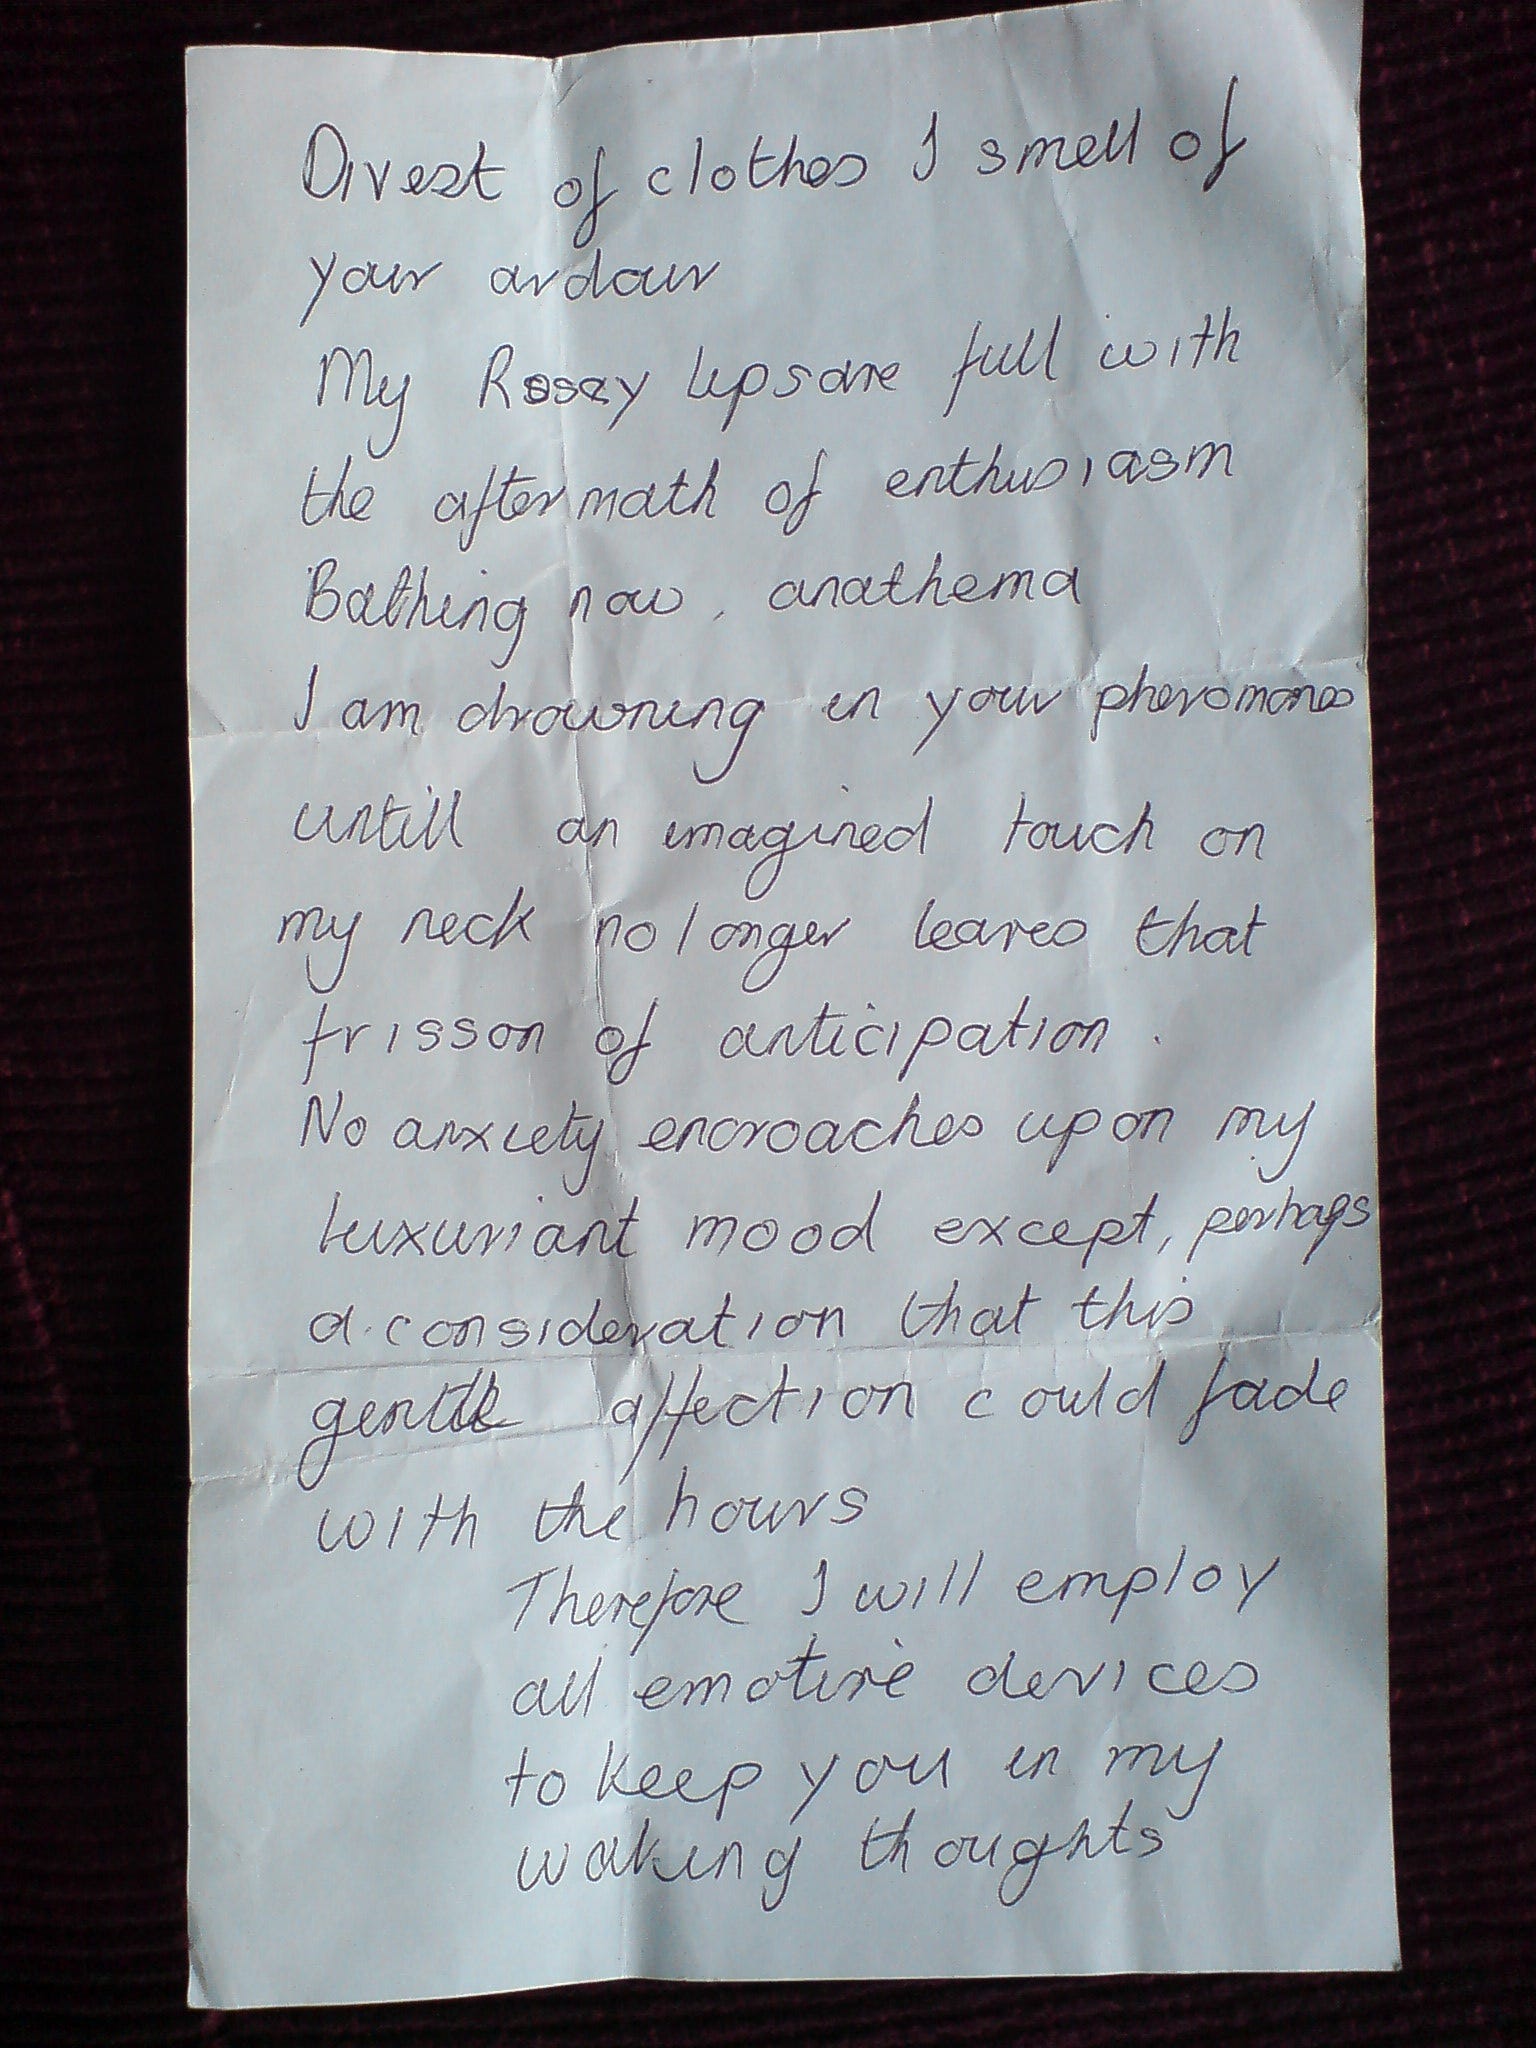 Divest of clothes I smell of
your ardour
My Rosey lips are full with
the aftermath of enthusiasm
Bathing now, anathema
I am drowning in your pheromones
untill an imagined touch on
my neck no longer leaves that
frisson of anticipation.
No anxiety encroaches upon my
luxuriant mood except, perhaps
a consideration that this
gentle affection could fade
with the hours
Therefore I will employ
all emotive devices
to keep you in my
waking thoughts